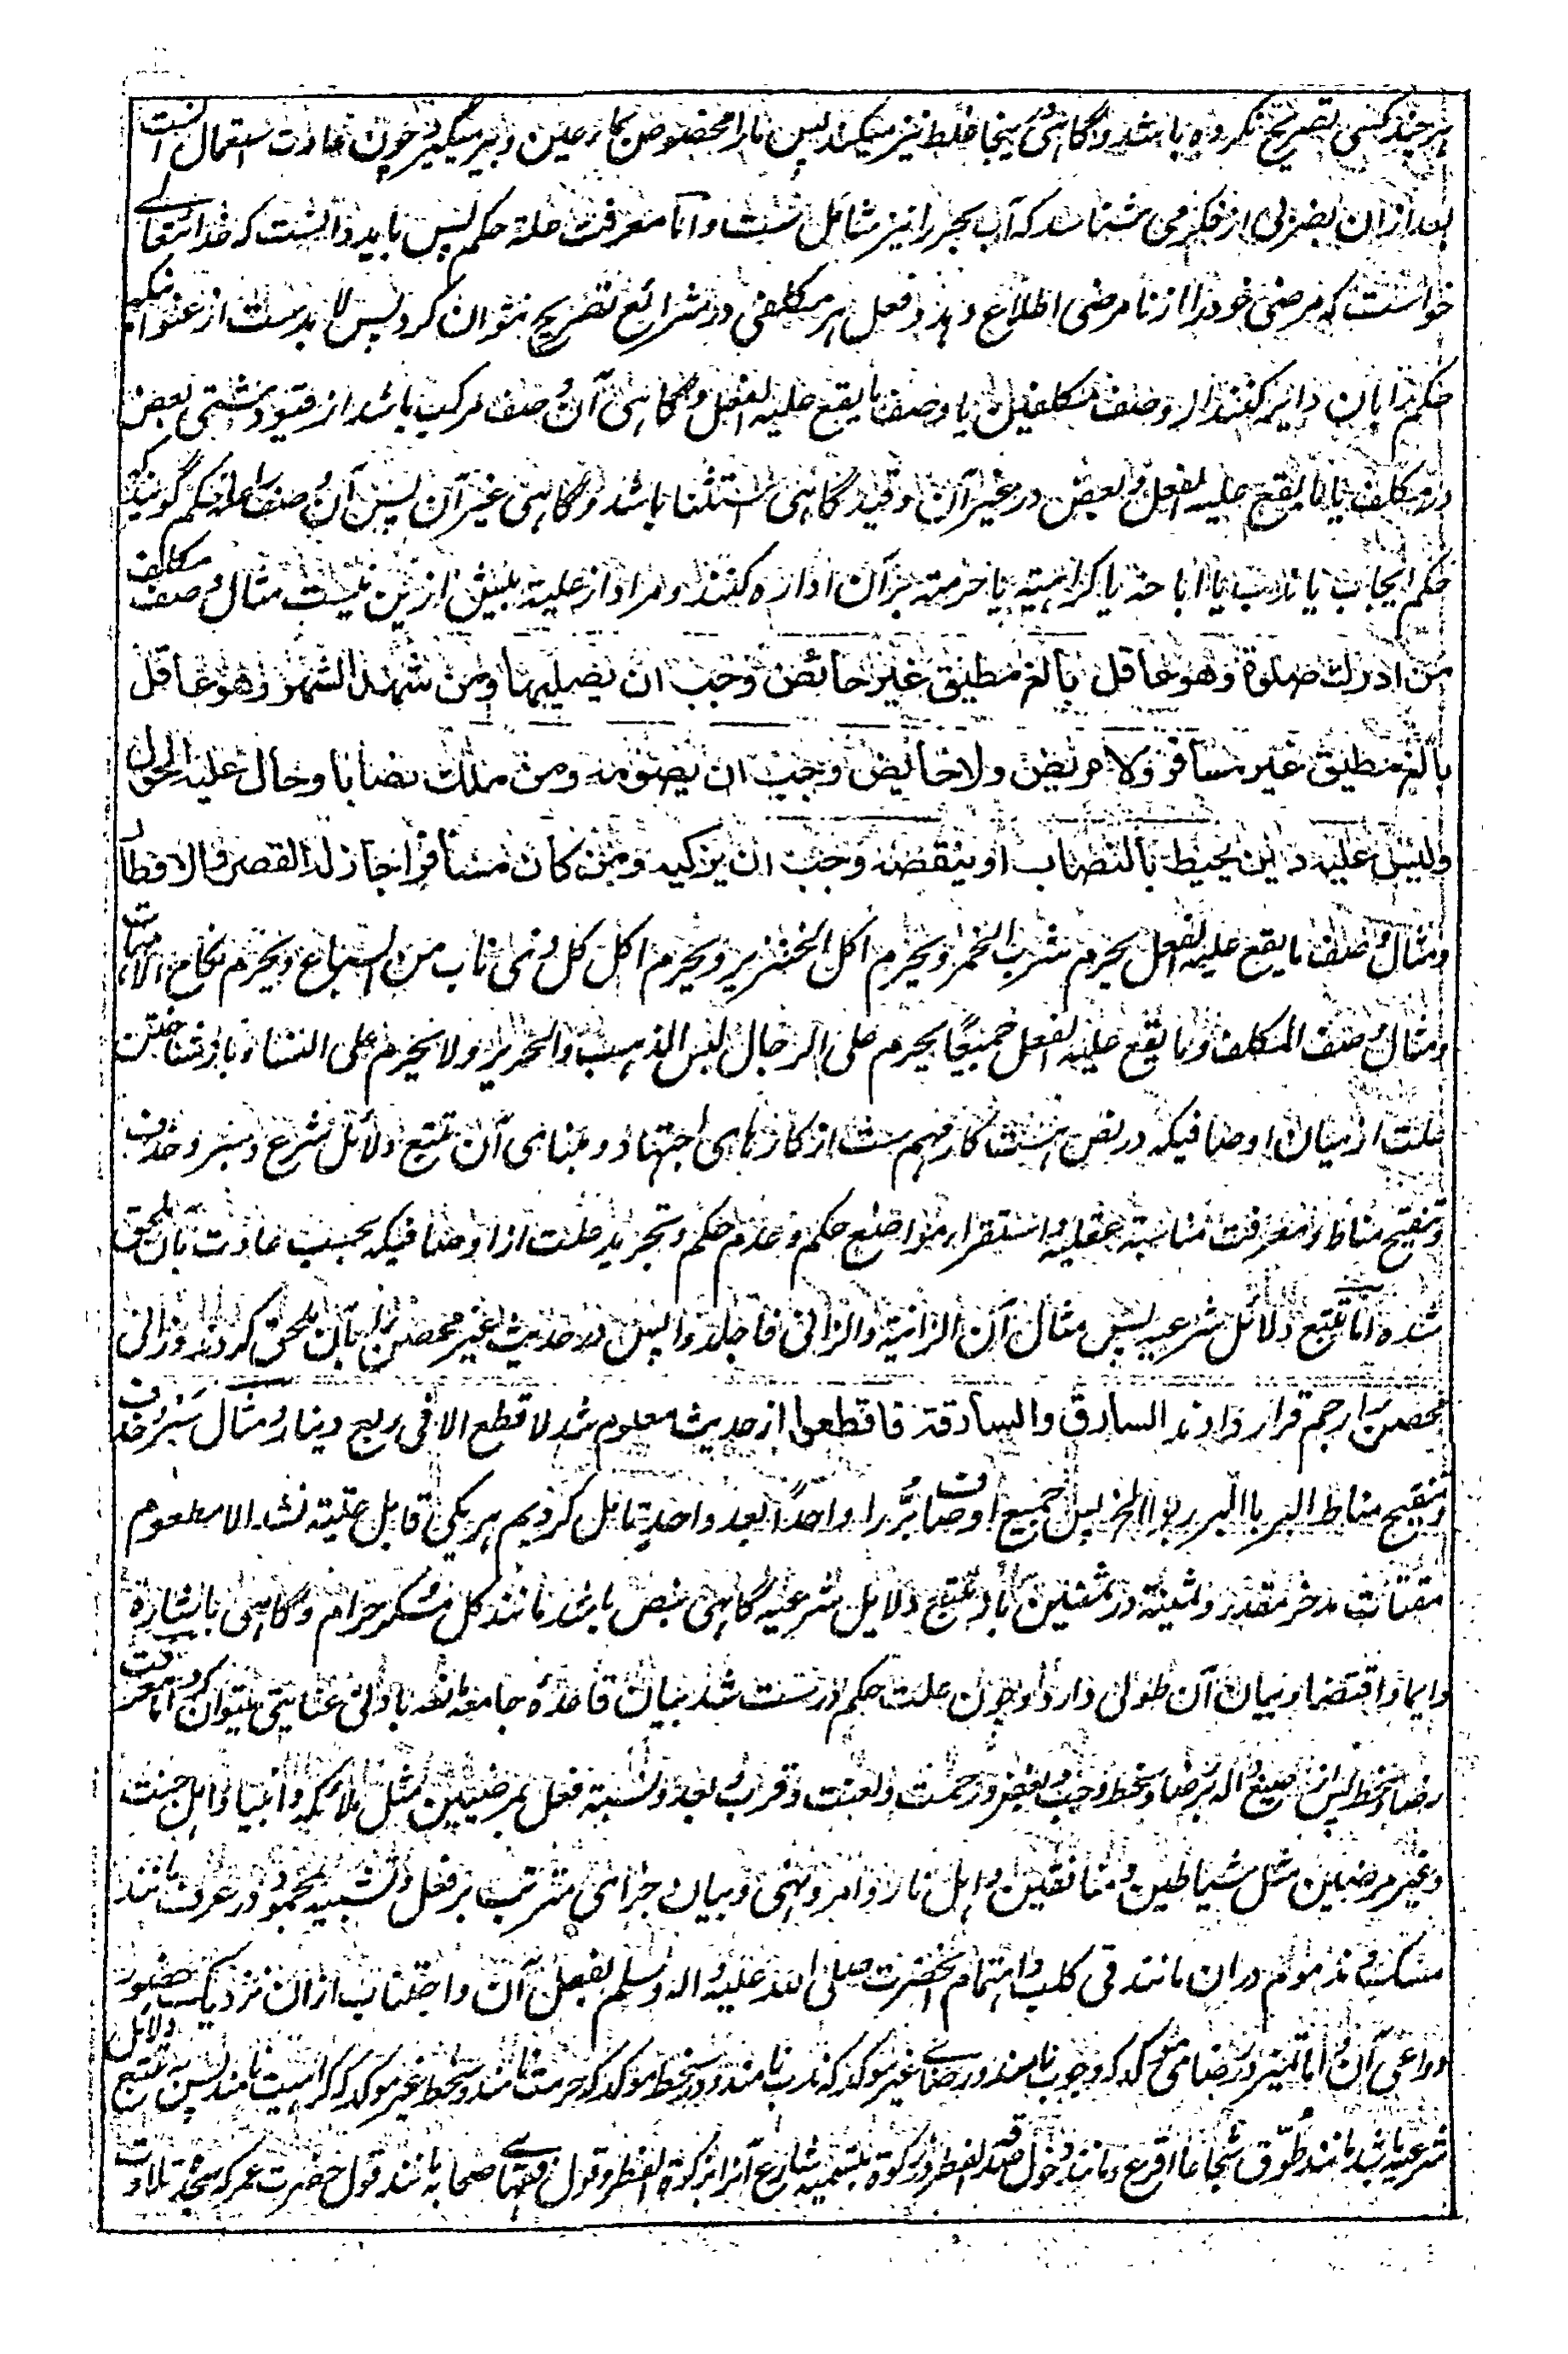 هر چند کسی تصریح نکرده باشد و گاهی اینجا غلط نیز میکند پس ما را مخصوص بجا و عین و بیر میگیرد چون عادت استعمال است
بعد ازان بضربی از فکر می شناسد که آب بحر را نیز شامل ست و اما معرفت علة حکم پس باید دانست که خدا تعالے
خواست که مرضی خود را از نامرضی اطلاع دهد و فعل هر مکلفی در شرائع تصریح نتوان کرد پس لا بدست از عنوانیکه
حکم را بان دایر کنند از وصف مکلفین یا وصف ما یقع علیه الفعل و گاهی آن وصف مرکب باشد از قیود شتی بعض
در مکلف یا ما یقع علیه الفعل و بعض در غیر آن و قید گاهی استثنا باشد و گاهی غیر آن پس آن وصف را علة حکم گویند که
حکم ایجاب یا ندب یا اباحة یا کراهیته یا حرمته بر آن اداره کنند و مراد از علیة بیش ازین نیست مثال وصف مکلف
من ادرك صلوة وهو عاقل بالغ مطيق غير حائض وجب ان يصليها ومن شهد الشهر وهو عاقل
بالغ مطيق غير مسافر ولا مريض ولا حائض وجب ان يصومه ومن ملك نصابا وحال عليه الحول
وليس عليه دين يحيط بالنصاب او ينقصه وجب ان يزكيه ومن كان مسافرا جاز له القصر والافطار
ومثال وصف ما یقع علیه الفعل یحرم شرب الخمر و یحرم اکل الخنزیر و یحرم اکل کل ذی ناب من السباع و یحرم نکاح الامهات
ومثال وصف المکلف و ما یقع علیه الفعل جمیعًا یحرم علی الرجال لبس الذهب والحریر ولا یحرم علی النساء و باز شناختن
علت از میان اوصافیکه در نص هست کار فهم ست از کارهای اجتهاد و مبنای آن تتبع دلائل شرع و سبر و حذف
و تنقیح مناط و معرفت مناسبة عقلیه و استقراء مواضع حکم و عدم حکم و تجرید علت از اوصافیکه بحسب عادت بآن ملحق
شده اما تتبع دلائل شرعیه پس مثال آن الزانیة والزانی فاجلدوا پس در حدیث غیر محصن را بآن ملحق کردند و زانی
محصن را رجم قرار دادند السارق والسارقة فاقطعوا از حدیث معلوم شد لا قطع الا فی ربع دینار و مثال سبر و حذف
و تنقیح مناط البر باالبر ربوا الخ پس جمیع اوصاف بُر را واحدًا بعد واحدٍ تامل کردیم هر یکی قابل علیّته نشد الا مطعوم
مقتات مدخر مقدر و ثمنیته در ثمنین باز تتبع دلایل شرعیه گاهی بنص باشد مانند کل مسکر حرام و گاهی باشارة
و ایما و اقتضا و بیان آن طولی دارد و چون علت حکم درست شد بیان قاعدۀ جامعه مانعه بادنی عنایتی میتوان کرد اما معرفت
رضا و سخط پس از صیغ داله بر رضا و سخط و حب و بغض و رحمت و لعنت و قرب و بعد و نسبته فعل بمرضیین مثل ملائکه و انبیا و اهل جنت
و غیر مرضیین مثل شیاطین و منافقین و اهل نار و امر و نهی و بیان جزای مترتب بر فعل و تشبیه بمحمود در عرف مانند
مسک و مذموم دران مانند قی کلب و اهتمام آنحضرت صلی الله علیه و اله وسلم بفعل آن و اجتناب ازان نزدیک حضور
دواعی آن و اما تمییز در رضا می موکد که وجوب نامند و رضاے غیر موکد که ندب نامند و در سخط موکد که حرمت نامند و سخط غیر موکد که کراهیت نامند پس به تتبع دلائل
شرعیه باشد مانند طُوّق شجاعا اقرع و مانند دخول صدقة الفطر در زکوة بتسمیه شارع آنرا بزکوة الفطر و قول فقهاے صحابه مانند قول حضرت عمر که سجدۀ تلاوت